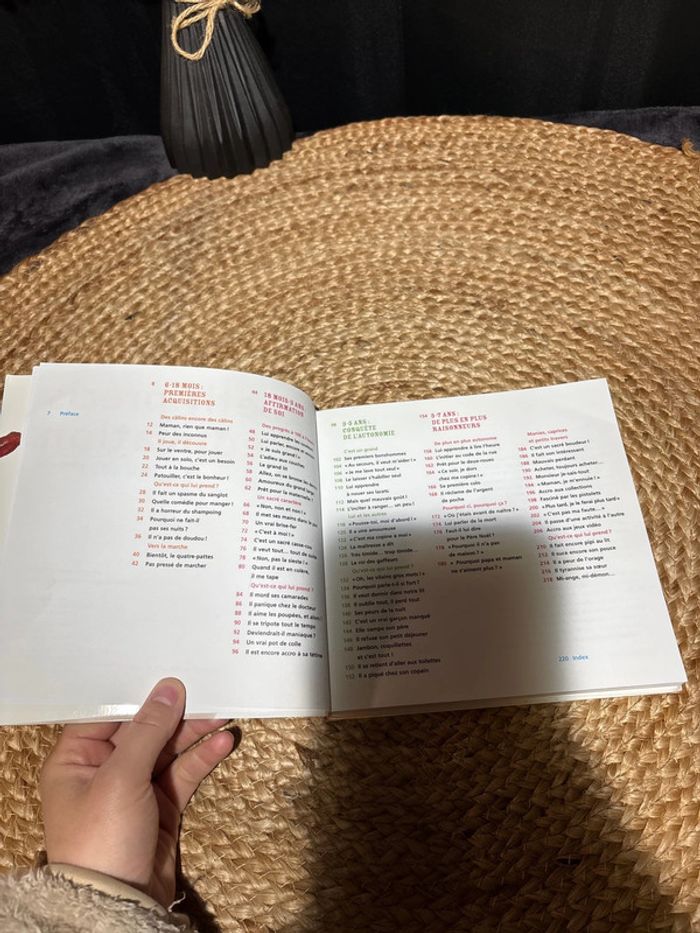 7 Préface
8 6-18 MOIS :
PREMIÈRES
ACQUISITIONS
Des câlins encore des câlins
12 Maman, rien que maman !
14 Peur des inconnus
Il joue, il découvre
18 Sur le ventre, pour jouer
20 Jouer en solo, c'est un besoin
22 Tout à la bouche
24 Patouiller, c'est le bonheur !
Qu'est-ce qui lui prend ?
28 Il fait un spasme du sanglot
30 Quelle comédie pour manger !
32 Il a horreur du shampoing
34 Pourquoi ne fait-il
pas ses nuits ?
36 Il n'a pas de doudou !
Vers la marche
40 Bientôt, le quatre-pattes
42 Pas pressé de marcher
44 18 MOIS-3 ANS
AFFIRMATION
DE SOI
Des progrès à
48 Lui apprendre les
50 Lui parler, encore et
52 « Je suis grand ! »
54 L'adieu aux couches
56 Le grand lit
58 Allez, on se brosse les
60 Amoureux du grand large
62 Prêt pour la maternelle !
Un sacré caractère
66 « Non, non et non ! »
68 Il met ses mains dans le
70 Un vrai brise-fer
72 « C'est à moi ! »
74 C'est un sacré casse-cou
76 Il veut tout... tout de
78 « Non, pas la sieste ! »
80 Quand il est en colère,
il me tape
Qu'est-ce qui lui prend ?
84 Il mord ses camarades
86 Il panique chez le docteur
88 Il aime les poupées, et alors
90 Il se tripote tout le temps
92 Deviendrait-il maniaque ?
94 Un vrai pot de colle
96 Il est encore accro à sa tétine
98 3-5 ANS :
CONQUÊTE
DE L'AUTONOMIE
C'est un grand
102 Ses premiers bonshommes
104 « Au secours, il veut m'aider ! »
106 « Je me lave tout seul »
108 Le laisser s'habiller seul
110 Lui apprendre
à nouer ses lacets
112 Mais quel mauvais goût !
114 L'inciter à ranger... un peu !
Lui et les autres
118 « Pousse-toi, moi d'abord ! »
120 Il a une amoureuse
122 « C'est ma copine à moi »
124 La maîtresse a dit
126 Trop timide... trop timide...
128 Le roi des gaffeurs
Qu'est-ce qui lui prend ?
132 « Oh, les vilains gros mots ! »
134 Pourquoi parle-t-il si fort ?
136 Il veut dormir dans notre lit
138 Il oublie tout, il perd tout
140 Ses peurs de la nuit
142 C'est un vrai garçon manqué
144 Elle singe son père
146 Il refuse son petit déjeuner
148 Jambon, coquillettes
et c'est tout !
150 Il se retient d'aller aux toilettes
152 Il a piqué chez son copain
154 5-7 ANS :
DE PLUS EN PLUS
RAISONNEURS
De plus en plus autonome
158 Lui apprendre à lire l'heure
160 L'initier au code de la rue
162 Prêt pour le deux-roues
164 « Ce soir, je dors
chez ma copine ! »
166 Sa première colo
168 Il réclame de l'argent
de poche
Pourquoi ci, pourquoi ça ?
172 « Où j'étais avant de naître ? »
174 Lui parler de la mort
176 Faut-il lui dire
pour le Père Noël ?
178 « Pourquoi il n'a pas
de maison ? »
180 « Pourquoi papa et maman
ne s'aiment plus ? »
Manies, caprices
et petits travers
184 C'est un sacré boudeur !
186 Il fait son intéressant
188 Mauvais perdant
190 Acheter, toujours acheter...
192 Monsieur je-sais-tout
194 « Maman, je m'ennuie ! »
196 Accro aux collections
198 Fasciné par les pistolets
200 « Plus tard, je le ferai plus tard »
202 « C'est pas ma faute... »
204 Il passe d'une activité à l'autre
206 Accro aux jeux vidéo
Qu'est-ce qui lui prend ?
210 Il fait encore pipi au lit
212 Il suce encore son pouce
214 Il a peur de l'orage
216 Il tyrannise sa sœur
218 Mi-ange, mi-démon...
220 Index